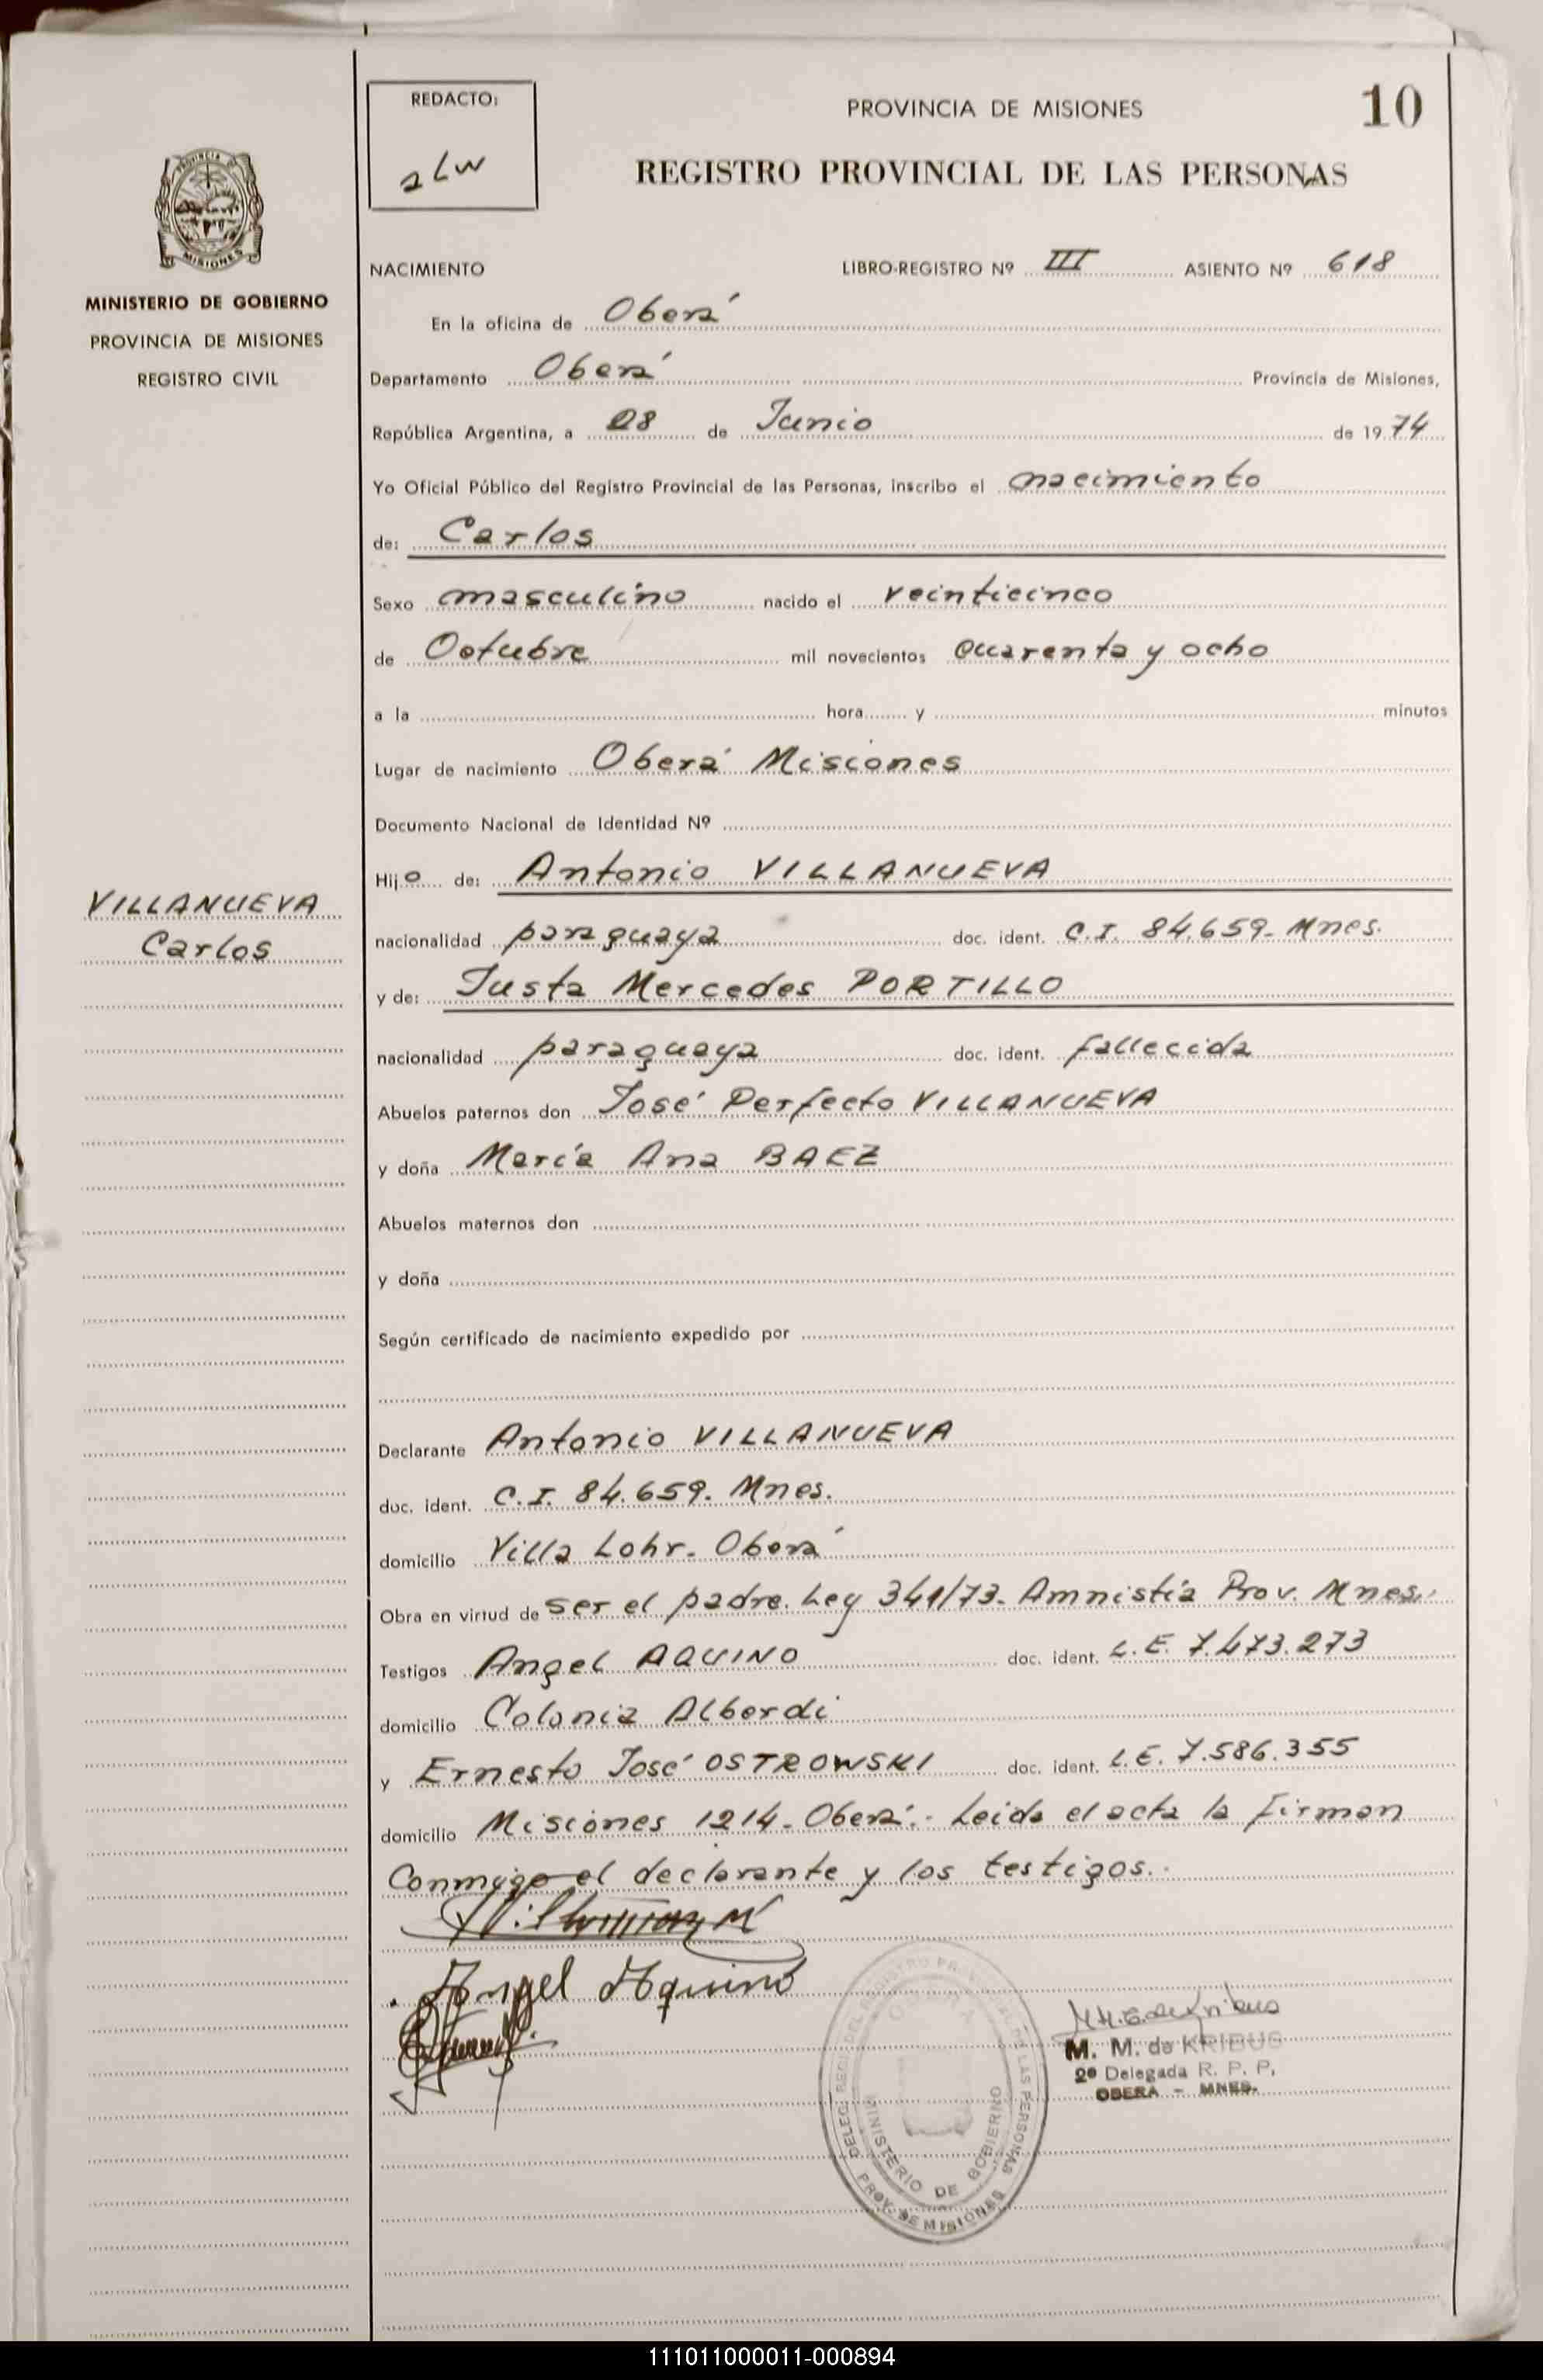 REDACTO:
PROVINCIA DE MISIONES
10
REGISTRO PROVINCIAL DE LAS PERSONAS
PROVINCIA DE
MISIONES
MINISTERIO DE GOBIERNO
PROVINCIA DE MISIONES
REGISTRO CIVIL
NACIMIENTO LIBRO-REGISTRO Nº III ASIENTO Nº 618
En la oficina de Oberá
Departamento Oberá Provincia de Misiones,
República Argentina, a 28 de Junio de 1974
Yo Oficial Público del Registro Provincial de las Personas, inscribo el nacimiento
de: Carlos
Sexo masculino nacido el veinticinco
de Octubre mil novecientos cuarenta y ocho
a la hora y minutos
Lugar de nacimiento Oberá Misiones
Documento Nacional de Identidad Nº
Hijo de: Antonio VILLANUEVA
VILLANUEVA
Carlos
nacionalidad paraguaya doc. ident. C.I. 84.659- Mnes.
y de: Justa Mercedes PORTILLO
nacionalidad paraguaya doc. ident. fallecida
Abuelos paternos don José Perfecto VILLANUEVA
y doña María Ana BAEZ
Abuelos maternos don
y doña
Según certificado de nacimiento expedido por
Declarante Antonio VILLANUEVA
doc. ident. C.I. 84.659. Mnes.
domicilio Villa Lohr. Oberá
Obra en virtud de ser el padre. Ley 341/73- Amnistía Prov. Mnes.
Testigos Angel AQUINO doc. ident. L.E. 7.473.273
domicilio Colonia Alberdi
y Ernesto José OSTROWSKI doc. ident. L.E. 7.586.355
domicilio Misiones 1214- Oberá.- Leída el acta la firman
Conmigo el declarante y los testigos.-
Angel Aquino
M. M. de KRIBUS
2º Delegada R. P. P.
OBERA - MNES.
MINISTERIO DE GOBIERNO
PROV. DE MISIONES
111011000011-000894